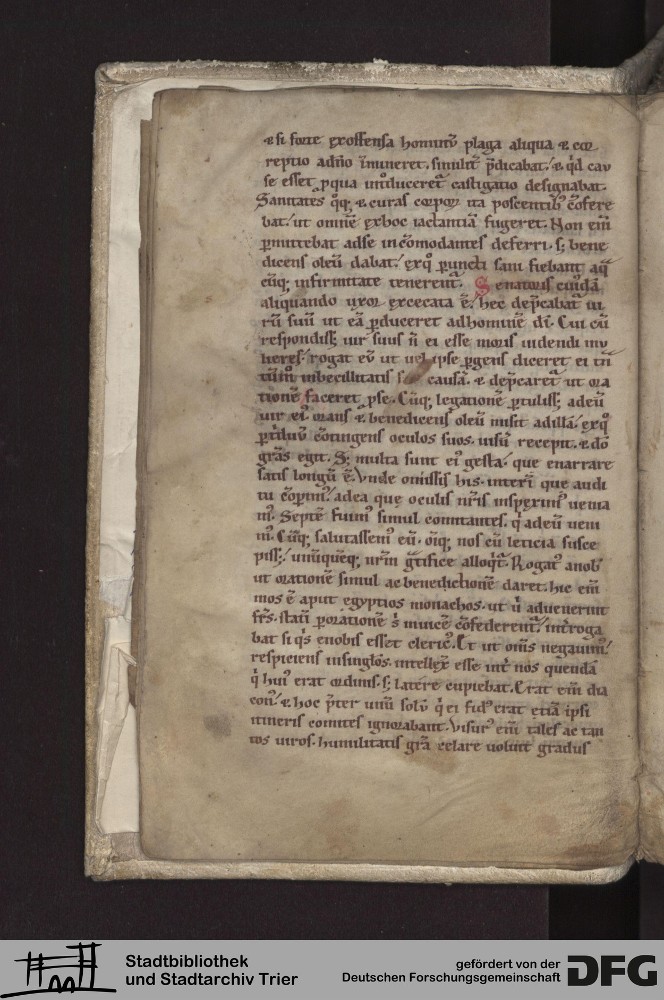 & si forte exoffensa hominū plaga aliqua & cor
reptio adn̄o īmineret. similit̄ p̄dicabat. & qd cau
se esset pqua intuluceret castigatio designabat.
Sanitates qq; & curas corpor ita poscentib' cōfere
bat. ut omnē exhoc iactantiā fugeret. Non eni
pmittebat adse incōmodantes deferri. s; bene
dicens oleū dabat. exq puncti sani fiebant aq
cūq; infirmitate tenerent. Senatoris cuidā
aliquando uxor excecata ē. hec dep̄cabat ui
rū suū ut eā pduceret adhominē di. Cui cū
respondiss; uir suus n̄ ei esse moris uidendi mu
lieres. rogat eū ut uel ipse pgens diceret ei tn̄
imbecillitatis causā. & dep̄caret ut ora
tionē faceret pse. Cūq; legationē ptuliss; adeū
uir ei' orans & benedicens oleū misit adillā. exq
cōtingens oculos suos. uisū recepit. & dō
grās egit. S; multa sunt ei' gesta. que enarrare
satis longū ē. Vnde omissis his. interī que audi
tu cōperim' adea que oculis nr̄is inspexim' uenia
m'. Septē fuim' simul comitantes. q adeū ueni
m'. Cūq; salutassem' eū. om̄q; nos cū leticia susce
piss; unūquēq; nr̄m gtifice alloqt. Rogat' anob'
ut orationē simul ac benedictionē daret. hic eni
mos ē aput egyptios monachos. ut u aduenerint
frs. statī porationē s' inuicē cōfederent. int̄roga
bat si qs enobis esset cleric'. Et ut om̄s negauim'
respiciens insinglos. intellex esse int̄ nos quendā
q hui' erat ordinis. s; latere cupiebat. Erat eni dia
con' & hoc p̄ter unū solū q ei fid' erat etiā ipsi
itineris comites ignorabant. Visur' eni tales ac tan
tos uiros. humilitatis grā celare uoluit gradus
Stadtbibliothek
und Stadtarchiv Trier
gefördert von der
Deutschen Forschungsgemeinschaft
DFG